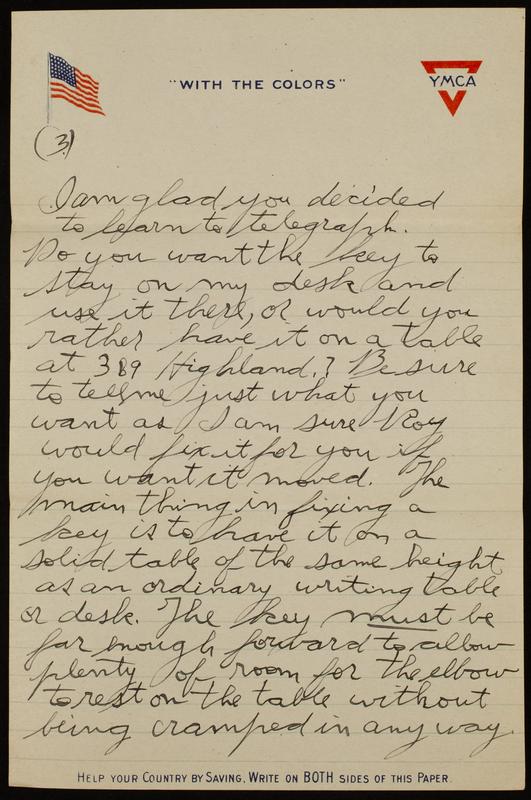 "WITH THE COLORS"
YMCA
(3)
I am glad you decided
to learn to telegraph.
Do you want the key to
stay on my desk and
use it there, or would you
rather have it on a table
at 389 Highland.? Be sure
to tell me just what you
want as I am sure Roy
would fix it for you if
you want it moved. The
main thing in fixing a
key is to have it on a
solid table of the same height
as an ordinary writing table
or desk. The key must be
far enough forward to allow
plenty of room for the elbow
to rest on the table without
being cramped in any way.
HELP YOUR COUNTRY BY SAVING, WRITE ON BOTH SIDES OF THIS PAPER